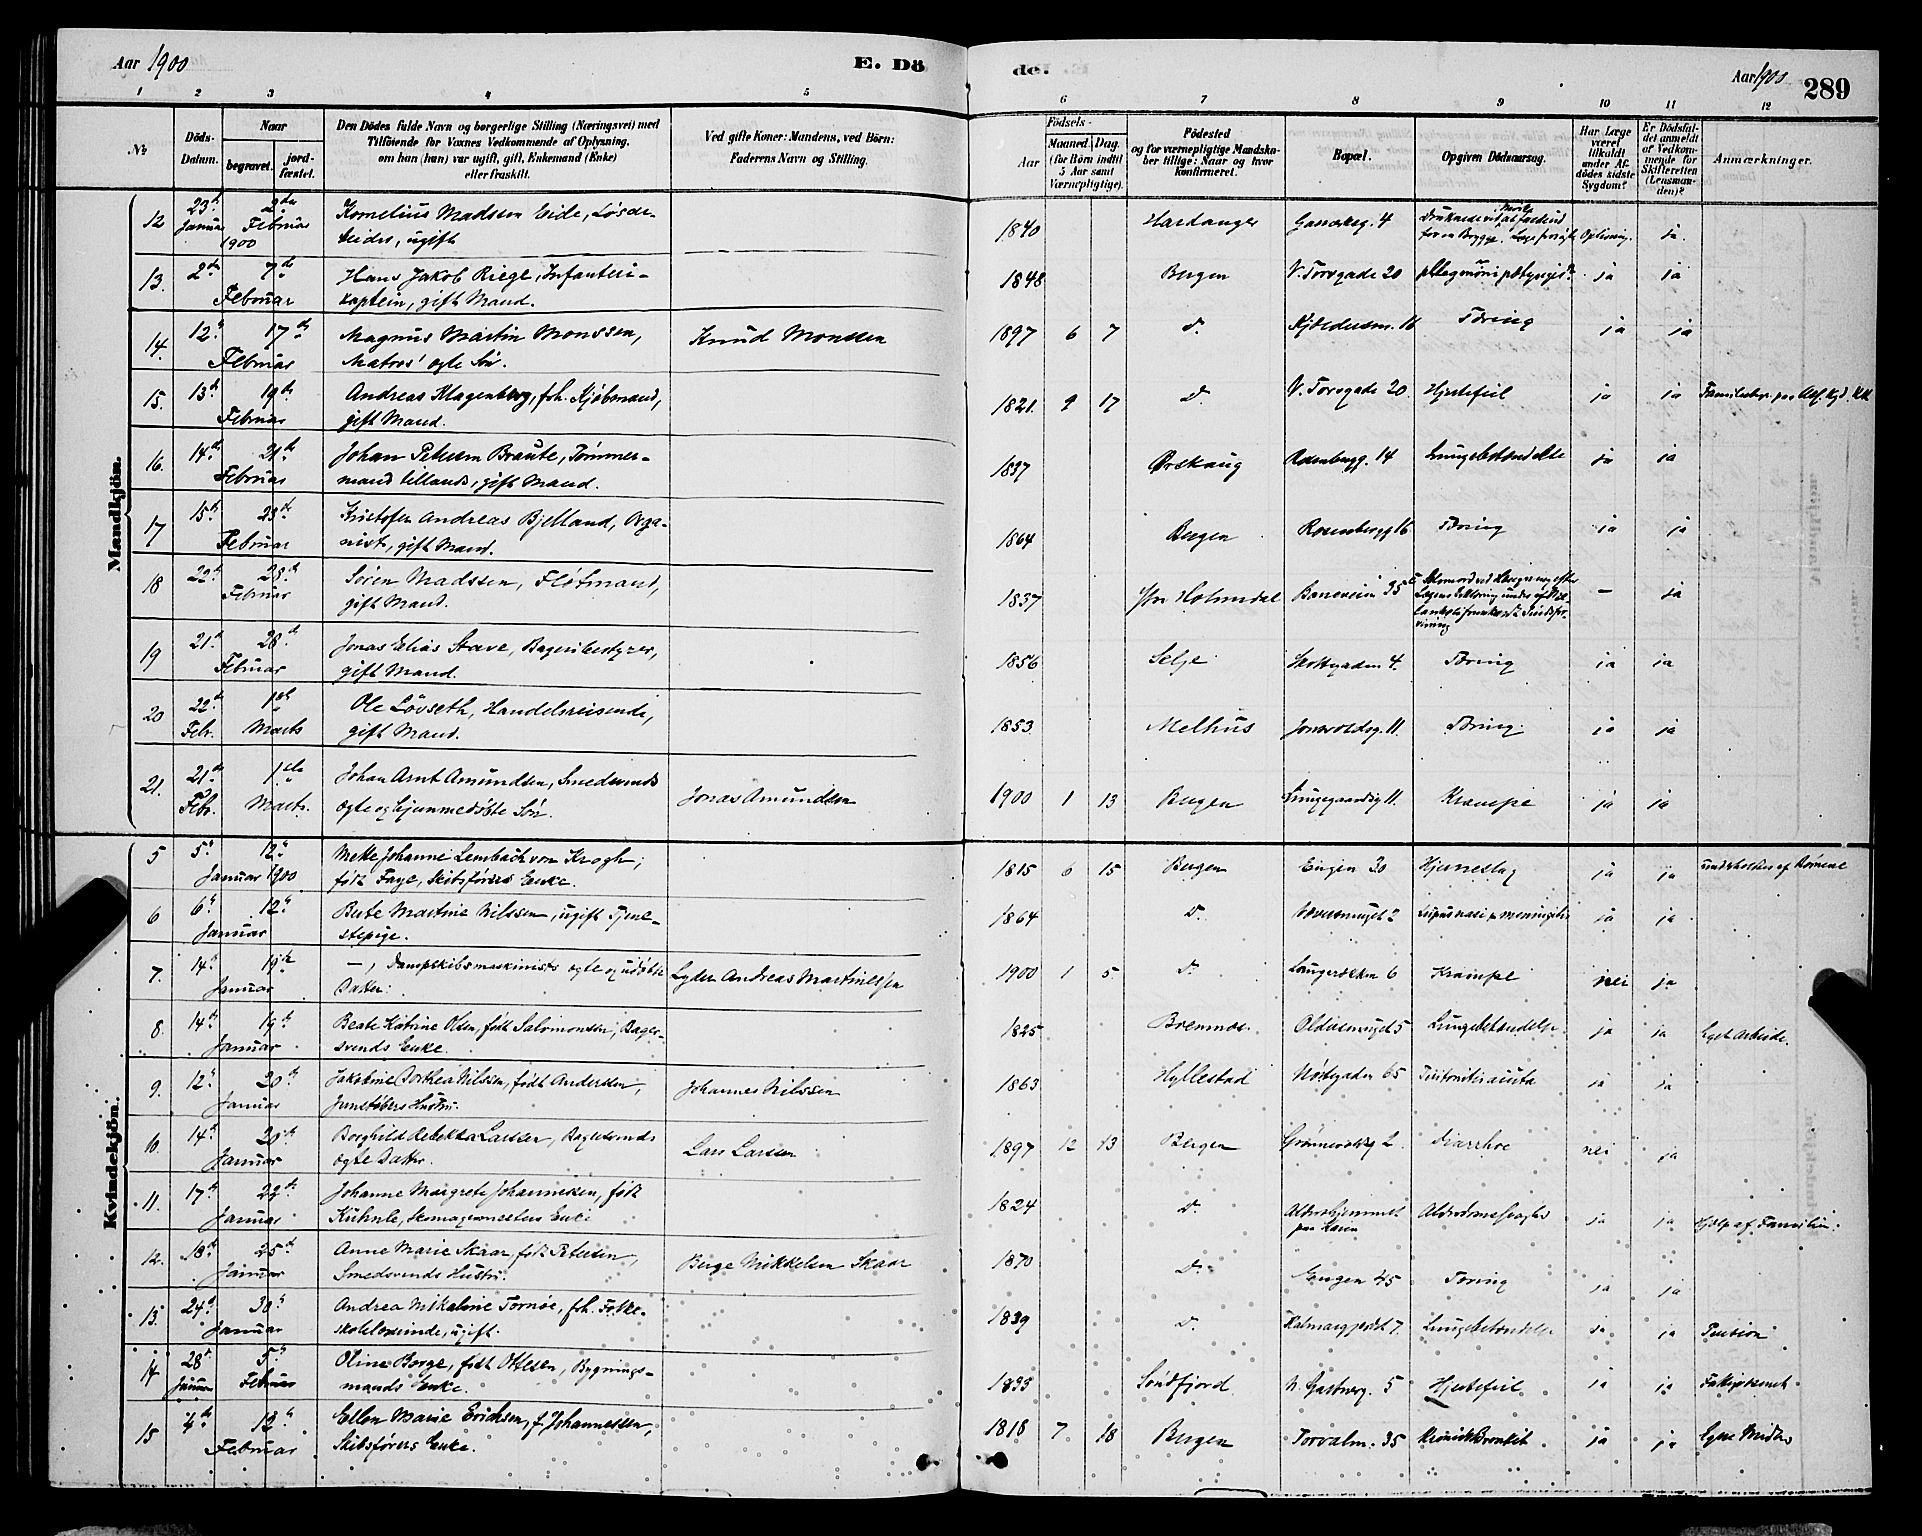 Aar 1900
E. Dö
de.
Aar 1900
289
1 2 3 4 5 6 7 8 9 10 11 12
No.
Döds-Datum.
Naar
begravet.
jordfæstet.
Den Dödes fulde Navn og borgerlige Stilling (Næringsvei) med
Tilföiende for Voxnes Vedkommende af Oplysning,
om han (hun) var ugift, gift, Enkemand (Enke)
eller fraskilt.
Ved gifte Koner: Mandens, ved Börn:
Faderens Navn og Stilling.
Födsels-
Aar
Maaned. Dag.
(for Börn indtil
5 Aar samt
Værnepligtige).
Födested
og for værnepligtige Mandska-
ber tillige: Naar og hvor
konfirmeret.
Bopæl.
Opgiven Dödsaarsag.
Har Læge
været
tilkaldt
under Af-
dödes sidste
Sygdom?
Er Dödsfal-
det anmeldt
af Vedkom-
mende for
Skifteretten
(Lensman-
den)?
Anmærkninger.
Mandkjön.
12 23de Januar 1900 2den Februar Kornelius Madssen Eide, Løsar-
beider, ugift 1840 Hardanger ja
13. 2den 7de Februar Hans Jakob Riege, Infanteri-
kaptein, gift Mand. 1848 Bergen V. Torvgade 20 ja ja
14. 12te 17de Februar Magnus Martin Monssen,
Matros' ægte Søn. Knud Monssen 1897 6 7 Do. 16 Tæring ja ja
15. 13de 19de Februar Andreas Klagenberg, fh. Kjøbmand,
gift Mand. 1821. 9 17 Do. V. Torvgade 20 Hjertefeil ja ja
16. 14de 21de Februar Johan Petersen Braute, Tømmer-
mand tillands, gift Mand. 1837 Ørskaug Rosenbergg. 14 Lungebetændelse ja ja
17 15de 23de Februar Kristofer Andreas Bjelland, Orga-
nist, gift Mand. 1864 Bergen Rosenbergg 16 Tæring ja ja
18 22de 28de Februar Søren Madssen, Fløtmand,
gift Mand. 1837 Holmedal Baneveien 35 — ja
19 21de 28de Februar Jonas Elias Stave, Bageribestyrer,
gift Mand. 1856 Selje 4. Tæring ja ja
20 22de Febr. 1ste Marts Ole Løvseth, Handelsreisende,
gift Mand. 1853 Melhus 11. Tæring. ja ja
21. 21de Febr. 1ste Marts. Johan Arnt Amundsen, Smedsvends
ægte og hjemmedøbte Søn. Jonas Amundsen 1900 1 13 Bergen Lungegaardsg 11. Krampe ja ja
Kvindekjön.
5 5te 12te Januar 1900 Mette Johanne Lembach von Krogh,
født Faye, Skibsførers Enke. 1815 6 15 Bergen Engen 30 Hjerneslag ja ja underholdes af Børnene
6 6te 12te Januar Berte Martine Nilssen, ugift Tjene-
stepige. 1864 Do. ja ja
7. 14de 19de Januar —, Dampskibsmaskinists ægte og udøbte
Datter. Lyder Andreas Martinessen 1900 1 5 Do. 6 Krampe nei ja
8. 14de 19de Januar Beate Katrine Olsen, født Salomonsen, Bager-
svends Enke. 1825 Bremnæs. 5 Lungebetændelse ja ja Eget Arbeide.
9. 12te 20de Januar Jakobine Dorthea Nilssen, født Andersen,
Jernstøbers Hustru. Johannes Nilssen 1863 Hyllestad 65 ja ja
10. 14de 20de Januar Borghild Rebekka Larssen, Bagersvends
ægte Datter. Lars Larssen 1897 12 13 Bergen 2 Diarrhoe nei ja
11. 17de 22de Januar Johanne Margrete Johannessen, født
Kühnle, Skomagermesters Enke 1824 Do. Aldershjemmet ja ja Hjælp af Familien.
12. 18de 25de Januar Anne Marie Skaar, født Petersen,
Smedsvends Hustru. Berge Mikkelsen Skaar 1870 Do. Engen 45 Tæring ja ja
13. 24de 30te Januar Andrea Nikoline Tornøe, fh. Folke-
skolelærerinde, ugift. 1839 Do. 7. Lungebetændelse ja ja Pension
14 28de Januar 5te Februar Oline Borge, født Ottesen, Bygnings-
mands Enke. Søndfjord 5 Hjertefeil ja ja
15 4de 12te Februar Ellen Marie Erichsen, f. Johannessen,
Skibsførers Enke. 1818 7 18 Bergen Torvalm. 35 Kronisk Bronkit ja ja Egne Midler